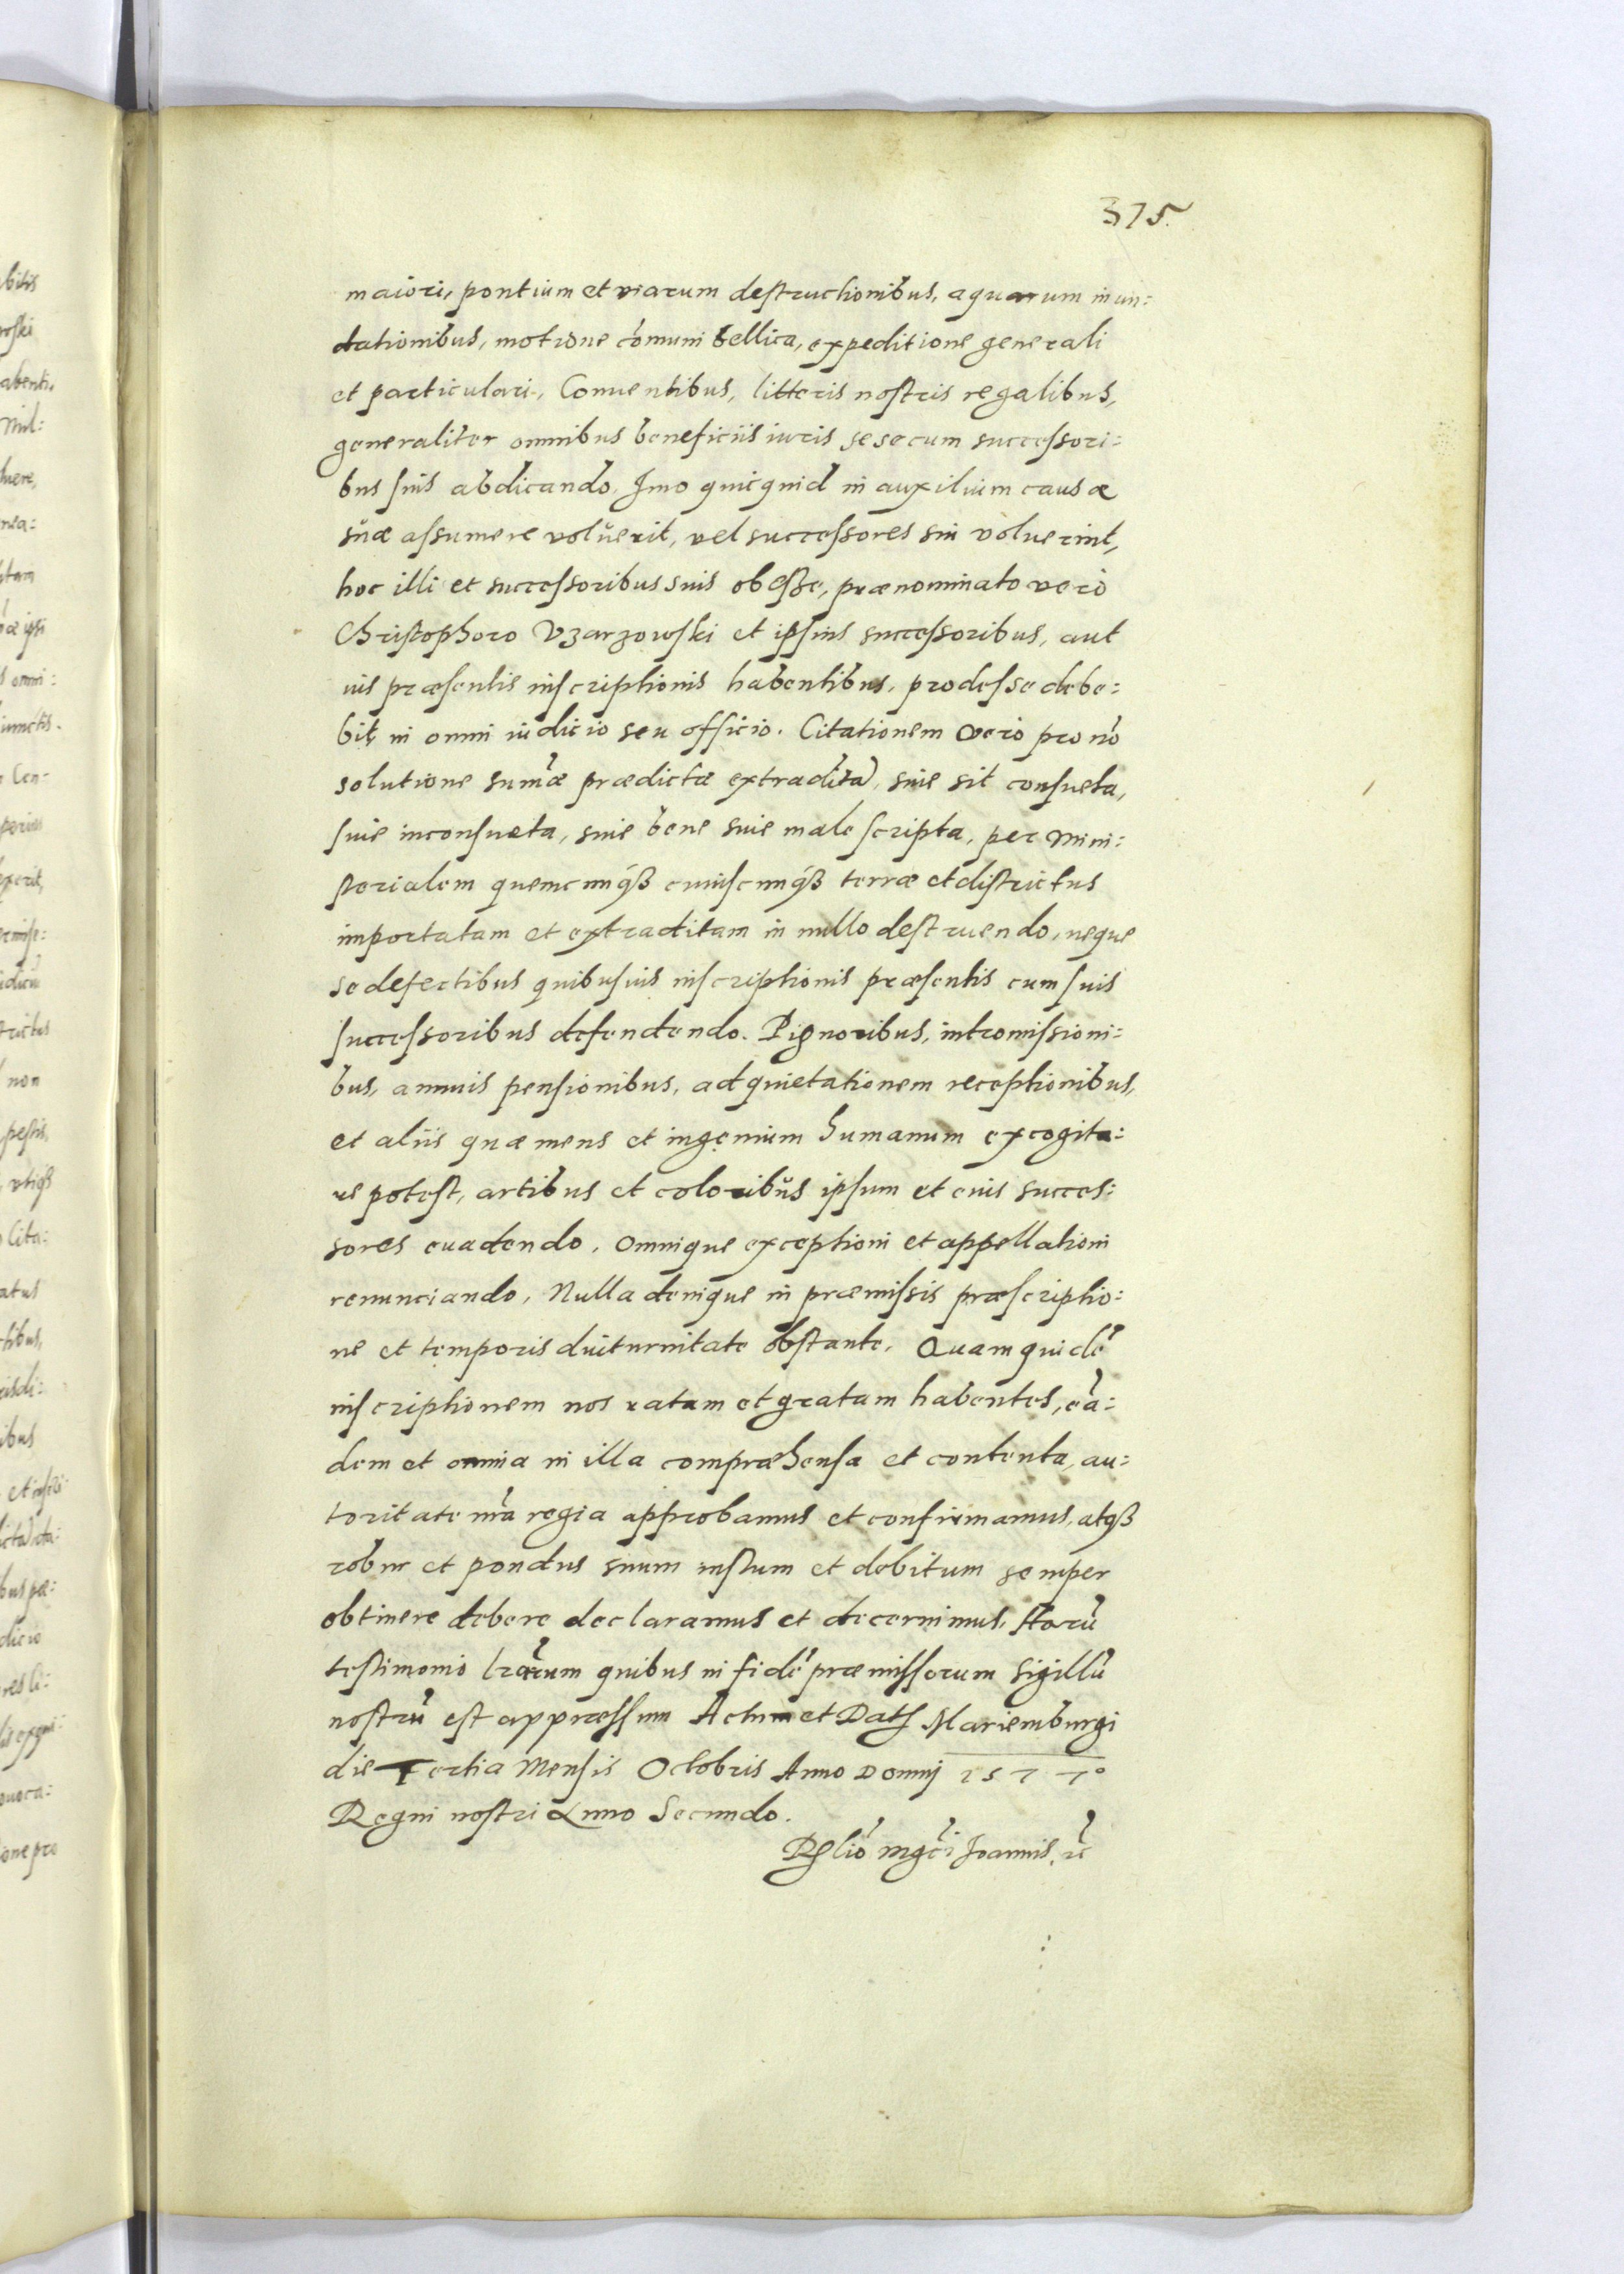 375.
maiori, pontium et viarum destructionibus, aquarum inun:
dationibus, motione cõmuni bellica, expeditione generali
et particulari, Conuentibus, litteris nostris regalibus,
generaliter omnibus beneficiis iuris sese cum successori:
bus suis abdicando. Imo quicquid in auxilium causæ
suæ assumere voluerit, vel successores sui voluerint,
hoc illi et successoribus suis obesse, prænominato vero
Christophoro Vzarzowski et ipsius successoribus, aut
ius præsentis inscriptionis habentibus, prodesse debe:
bit, in omni iudicio seu officio. Citationem vero pro nõ
solutione sum̃æ prædictæ extraditã, siue sit consueta,
siue inconsueta, siue bene siue male scripta, per Mini:
sterialem quemcunqȝ cuiuscunqȝ terræ et districtus
importatam et extraditam in nullo destruendo, neque
se defectibus quibusuis inscriptionis præsentis cum suis
successoribus defendendo. Pignoribus, intromissioni:
bus, annuis pensionibus, ad quietationem receptionibus,
et aliis quæ mens et ingenium humanum excogita:
re potest, artibus et coloribus ipsum et eius succes:
sores euadendo. Omnique exceptioni et appellationi
renunciando. Nulla denique in præmissis præscriptio:
ne et temporis diuturnitate obstante. Quam quidẽ
inscriptionem nos ratam et gratam habentes, eã:
dem et omnia in illa compræhensa et contenta, au:
toritate nr̃a regia approbamus et confirmamus, atqȝ
robur et pondus suum iustum et debitum semper
obtinere debere declaramus et decernimus, Harũ
testimonio lr̃arum quibus in fidẽ præmissorum sigillũ
nostrũ est appressum Actum et Dat Mariemburgi
die Tertia Mensis Octobris Anno Domni 1577º
Regni nostri Anno Secundo.
Rlio mgci Joannis, rc